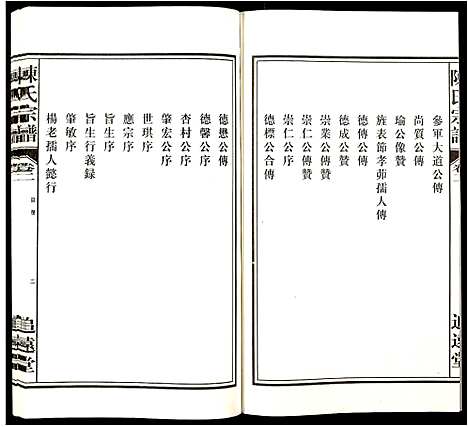 陳氏宗譜
卷二
追遠堂
參軍大道公傳
尚質公傳
瑜公像贊
旌表節孝茆孺人傳
德傳公傳
德成公贊
崇業公傳贊
崇仁公傳贊
崇仁公序
德標公合傳
德懋公傳
德馨公序
杏村公序
肇宏公序
世琪序
應宗序
旨生序
旨生行義錄
肇敏序
楊老孺人懿行
陳氏宗譜
卷二
二
追遠堂